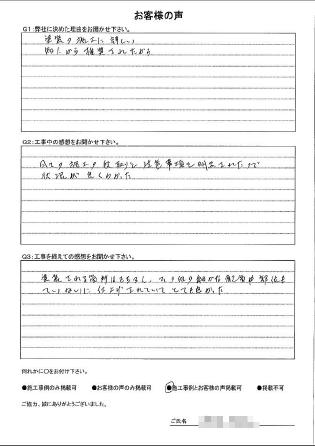 お客様の声
Q1:弊社に決めた理由をお聞かせ下さい。
塗装の施工に詳しい
知人から推薦されたから
Q2:工事中の感想をお聞かせ下さい。
施工の段取りと注意事項を明示されたので
状況が良くわかった
Q3:工事を終えての感想をお聞かせ下さい。
塗装される箇所はもちろん、細かな
ていねいに仕上げされていてとても良かった
何れかに〇をお付け下さい。
●施工事例のみ掲載可 ●お客様の声のみ掲載可 ●施工事例とお客様の声掲載可 ●掲載不可
ご協力、誠にありがとうございました。
ご氏名